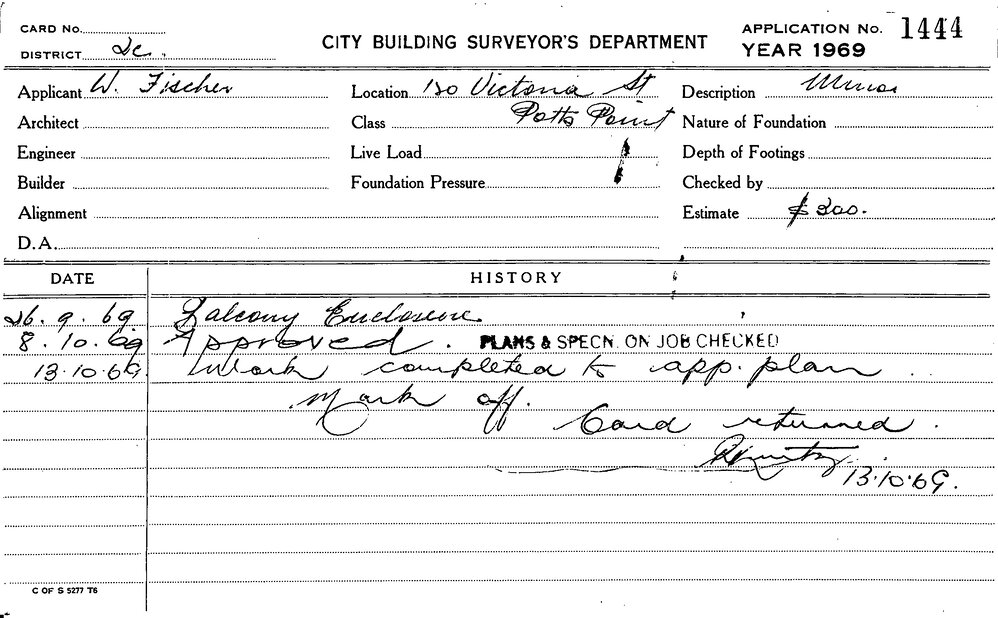 CARD No.
DISTRICT
CITY BUILDING SURVEYOR'S DEPARTMENT
APPLICATION No. 1444
YEAR 1969
Applicant W. Fischer
Location 120 Victoria St
Description Minor
Architect
Class Potts Point
Nature of Foundation
Engineer
Live Load
Depth of Footings
Builder
Foundation Pressure
Checked by
Alignment
Estimate $200.
D.A.
DATE
HISTORY
26.9.69 Balcony Enclosure
8.10.69 Approved. PLANS & SPECN. ON JOB CHECKED
13.10.69 Work completed to app. plan
Mark off.
Card returned.
13.10.69.
C OF S 5277 T6